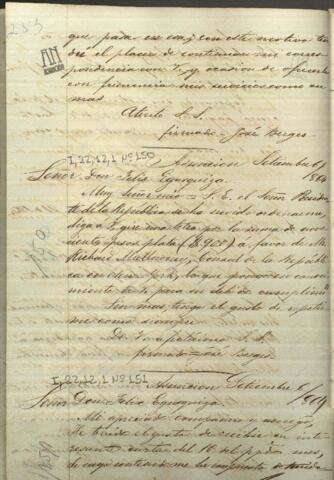 253
AN
que pada en esa, y con este motivo ten
dré el placer de continuar mi corres
pondencia con V. y ocasion de ofrecerle
con frecuencia mis servicios como en
mas
Atento S. S.
firmado José Berges
I, 22, 12, 1 Nº 150
Asuncion Setiembre 6/864
Señor Don Felix Egusquiza.
150
Muy Señor mio = S. E. el Señor Presiden
te de la República se ha servido ordenarme
diga a V. que una letra por la suma de nove
cientos pesos plata ($ 900) a favor de Mr
Richard Mullowney, Consul de la Repúbli
ca en New York, lo que pongo en conoci
miento de V. para su debido cumplimto
Sin mas, tengo el gusto de repetir
me como siempre
De V. apasionado S. S.
firmado José Berges
I, 22, 12, 1 Nº 151
Asuncion Setiembre 6/864
Señor Don Felix Egusquiza.
151
Mi apreciado compatriota y amigo,
He tenido el gusto de recibir su inte
resante carta del 16 del ppdo mes,
de cuyo contenido me he impuesto